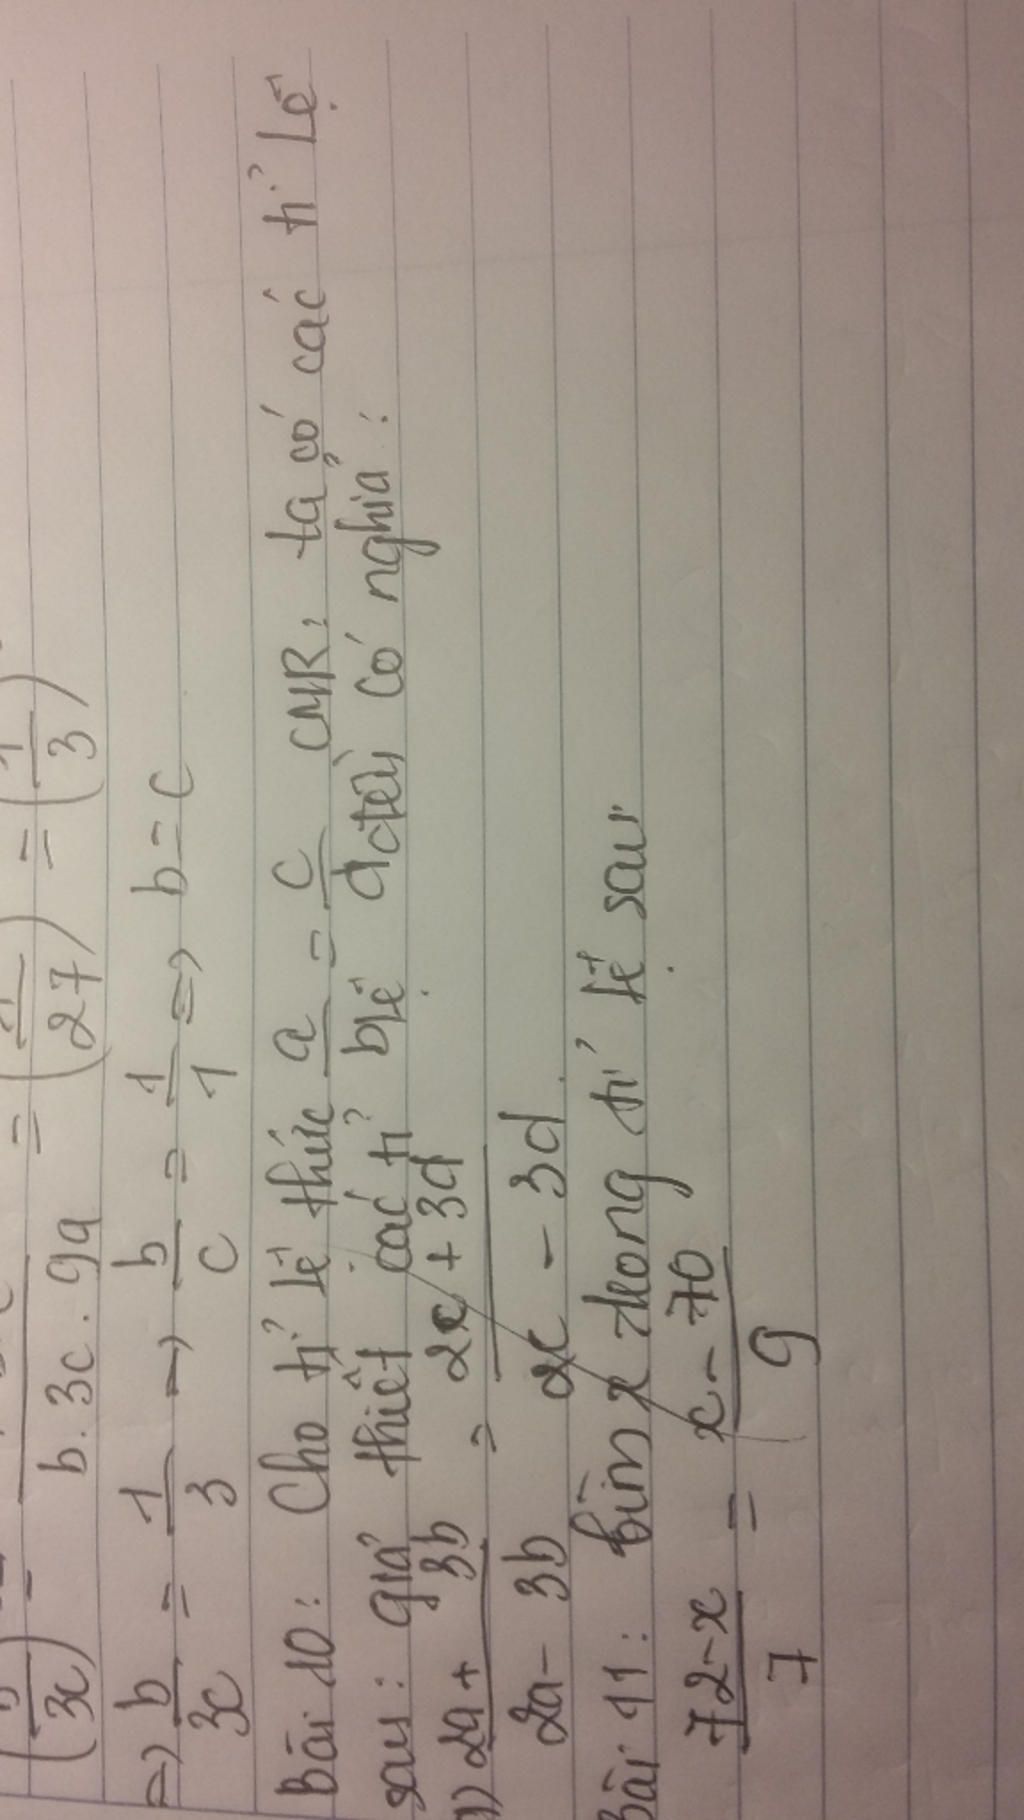 (b/3c) = b.3c.9a = (1/27) = (1/3)
=> b/3c = 1/3 -> b/c = 1/1 => b = c
Bài 10: Cho tỉ lệ thức a/ = c/ CMR: ta có các tỉ lệ
sau: giả thiết các tỉ đều có nghĩa:
2a + 3b / 2a - 3b = 2c + 3d / 2c - 3d.
Bài 11: tìm x trong tỉ lệ sau
72-x / 7 = x-70 / 9